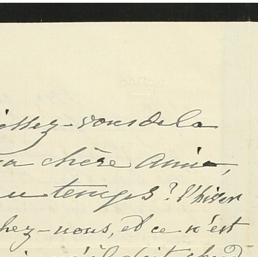 issez-vous de la
a chère amie,
u temps? l'hiver
chez-nous, et ce n'est